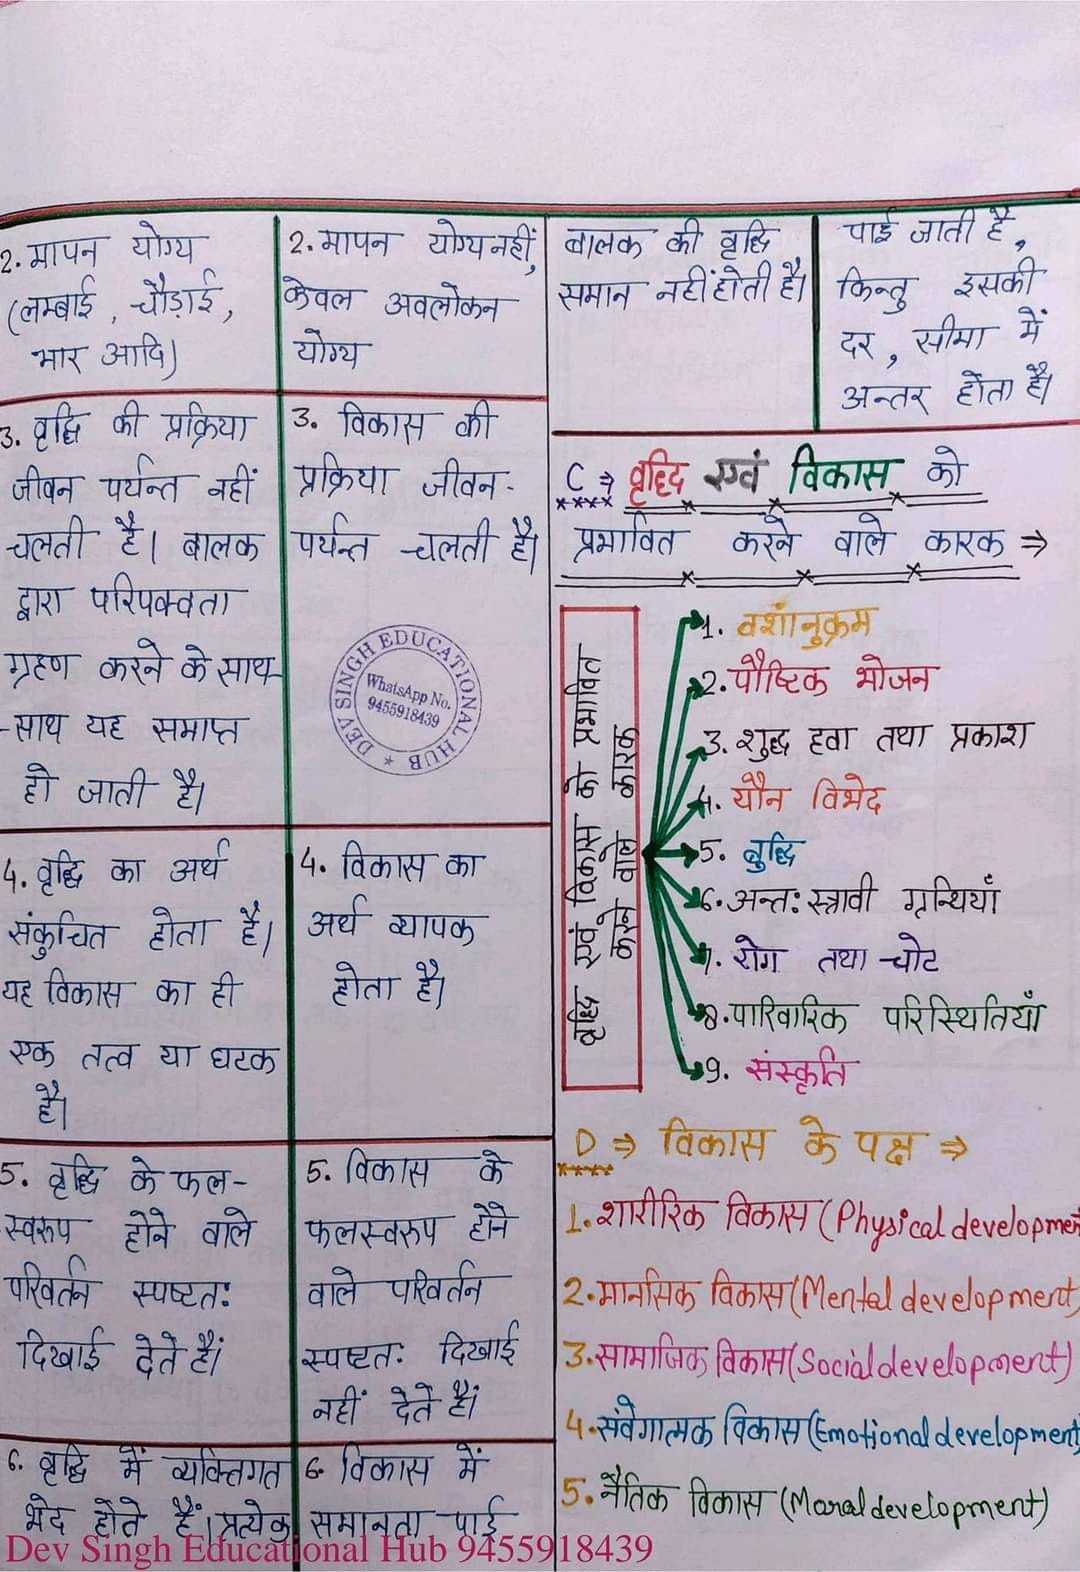 2. मापन योग्य
(लम्बाई, चौड़ाई,
भार आदि)
2. मापन योग्य नहीं,
केवल अवलोकन
योग्य
3. वृद्धि की प्रक्रिया
जीवन पर्यन्त नहीं
चलती है। बालक
द्वारा परिपक्वता
ग्रहण करने के साथ-
-साथ यह समाप्त
हो जाती है।
3. विकास की
प्रक्रिया जीवन-
पर्यन्त चलती है।
DEV SINGH EDUCATIONAL HUB
WhatsApp No.
9455918439
4. वृद्धि का अर्थ
संकुचित होता है।
यह विकास का ही
एक तत्व या घटक
है।
4. विकास का
अर्थ व्यापक
होता है।
5. वृद्धि के फल-
स्वरूप होने वाले
परिवर्तन स्पष्टत:
दिखाई देते हैं।
5. विकास के
फलस्वरूप होने
वाले परिवर्तन
स्पष्टत: दिखाई
नहीं देते हैं।
6. वृद्धि में व्यक्तिगत
भेद होते हैं। प्रत्येक
6. विकास में
समानता पाई
बालक की वृद्धि
समान नहीं होती है।
पाई जाती है,
किन्तु इसकी
दर, सीमा में
अन्तर होता है।
C ⇒ वृद्धि एवं विकास को
प्रभावित करने वाले कारक ⇒
वृद्धि एवं विकास को प्रभावित
करने वाले कारक
1. वशांनुक्रम
2. पौष्टिक भोजन
3. शुद्ध हवा तथा प्रकाश
4. यौन विभेद
5. बुद्धि
6. अन्त: स्त्रावी ग्रन्थियाँ
7. रोग तथा चोट
8. पारिवारिक परिस्थितियाँ
9. संस्कृति
D ⇒ विकास के पक्ष ⇒
1. शारीरिक विकास (Physical developmen
2. मानसिक विकास (Mental development)
3. सामाजिक विकास (Social development)
4. संवेगात्मक विकास (Emotional development)
5. नैतिक विकास (Moral development)
Dev Singh Educational Hub 9455918439